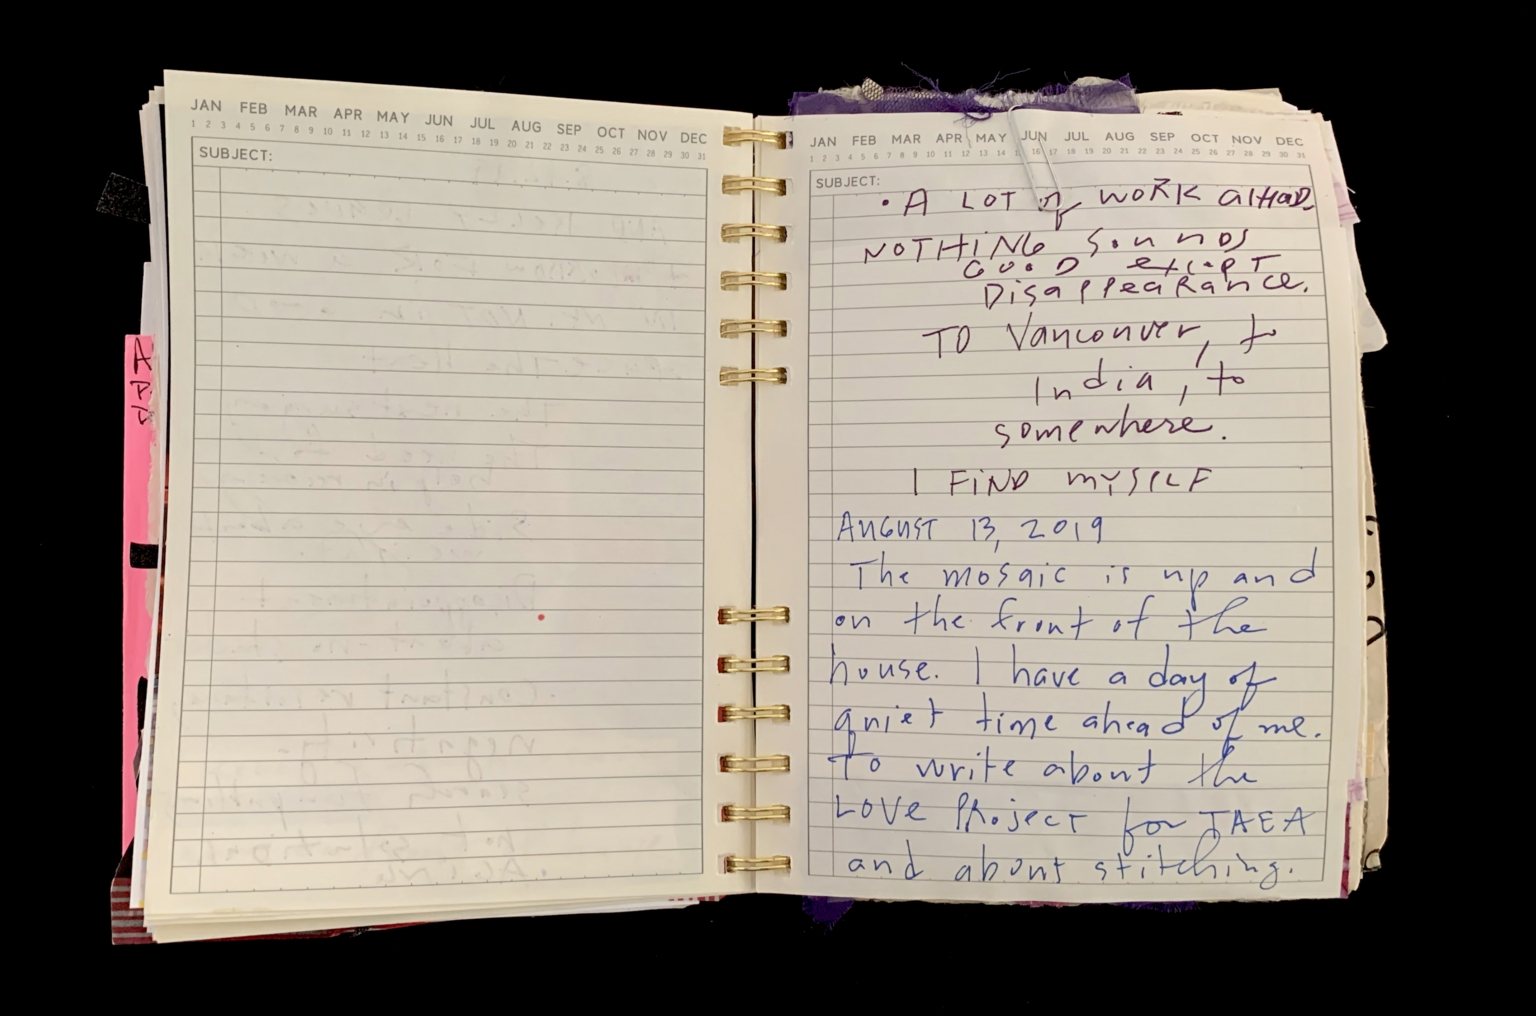 JAN FEB MAR APR MAY JUN JUL AUG SEP OCT NOV DEC
1 2 3 4 5 6 7 8 9 10 11 12 13 14 15 16 17 18 19 20 21 22 23 24 25 26 27 28 29 30 31
SUBJECT:
A
P
P
JAN FEB MAR APR MAY JUN JUL AUG SEP OCT NOV DEC
1 2 3 4 5 6 7 8 9 10 11 12 13 14 15 16 17 18 19 20 21 22 23 24 25 26 27 28 29 30 31
SUBJECT:
• A LOT of WORK aHeaD.
NOTHING SounDS
GOOD except
DisappeaRance.
TO Vancouver, to
India, to
somewhere.
I FIND mySELF
AUGUST 13, 2019
The mosaic is up and
on the front of the
house. I have a day of
quiet time ahead of me.
To write about the
LOVE PROJECT for TAEA
and about stitching.